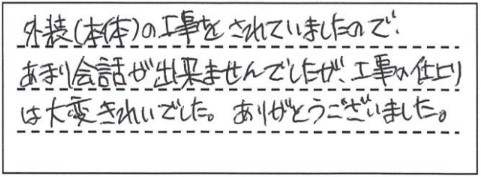 外装(本体)の工事をされていましたので、
あまり会話が出来ませんでしたが、工事の仕上り
は大変きれいでした。ありがとうございました。